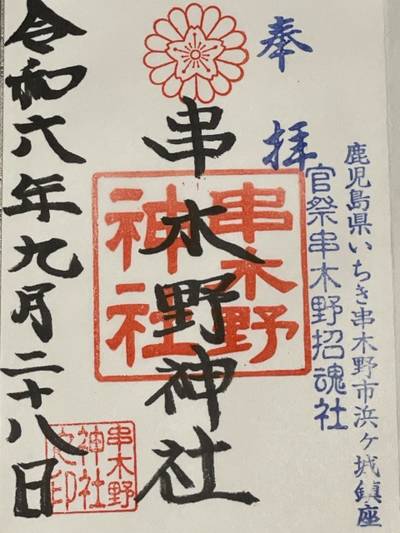 奉拝
鹿児島県いちき串木野市浜ヶ城鎮座
官祭串木野招魂社
串木野神社
串木野
神社
令和六年九月二十八日
串木野
神社
之印